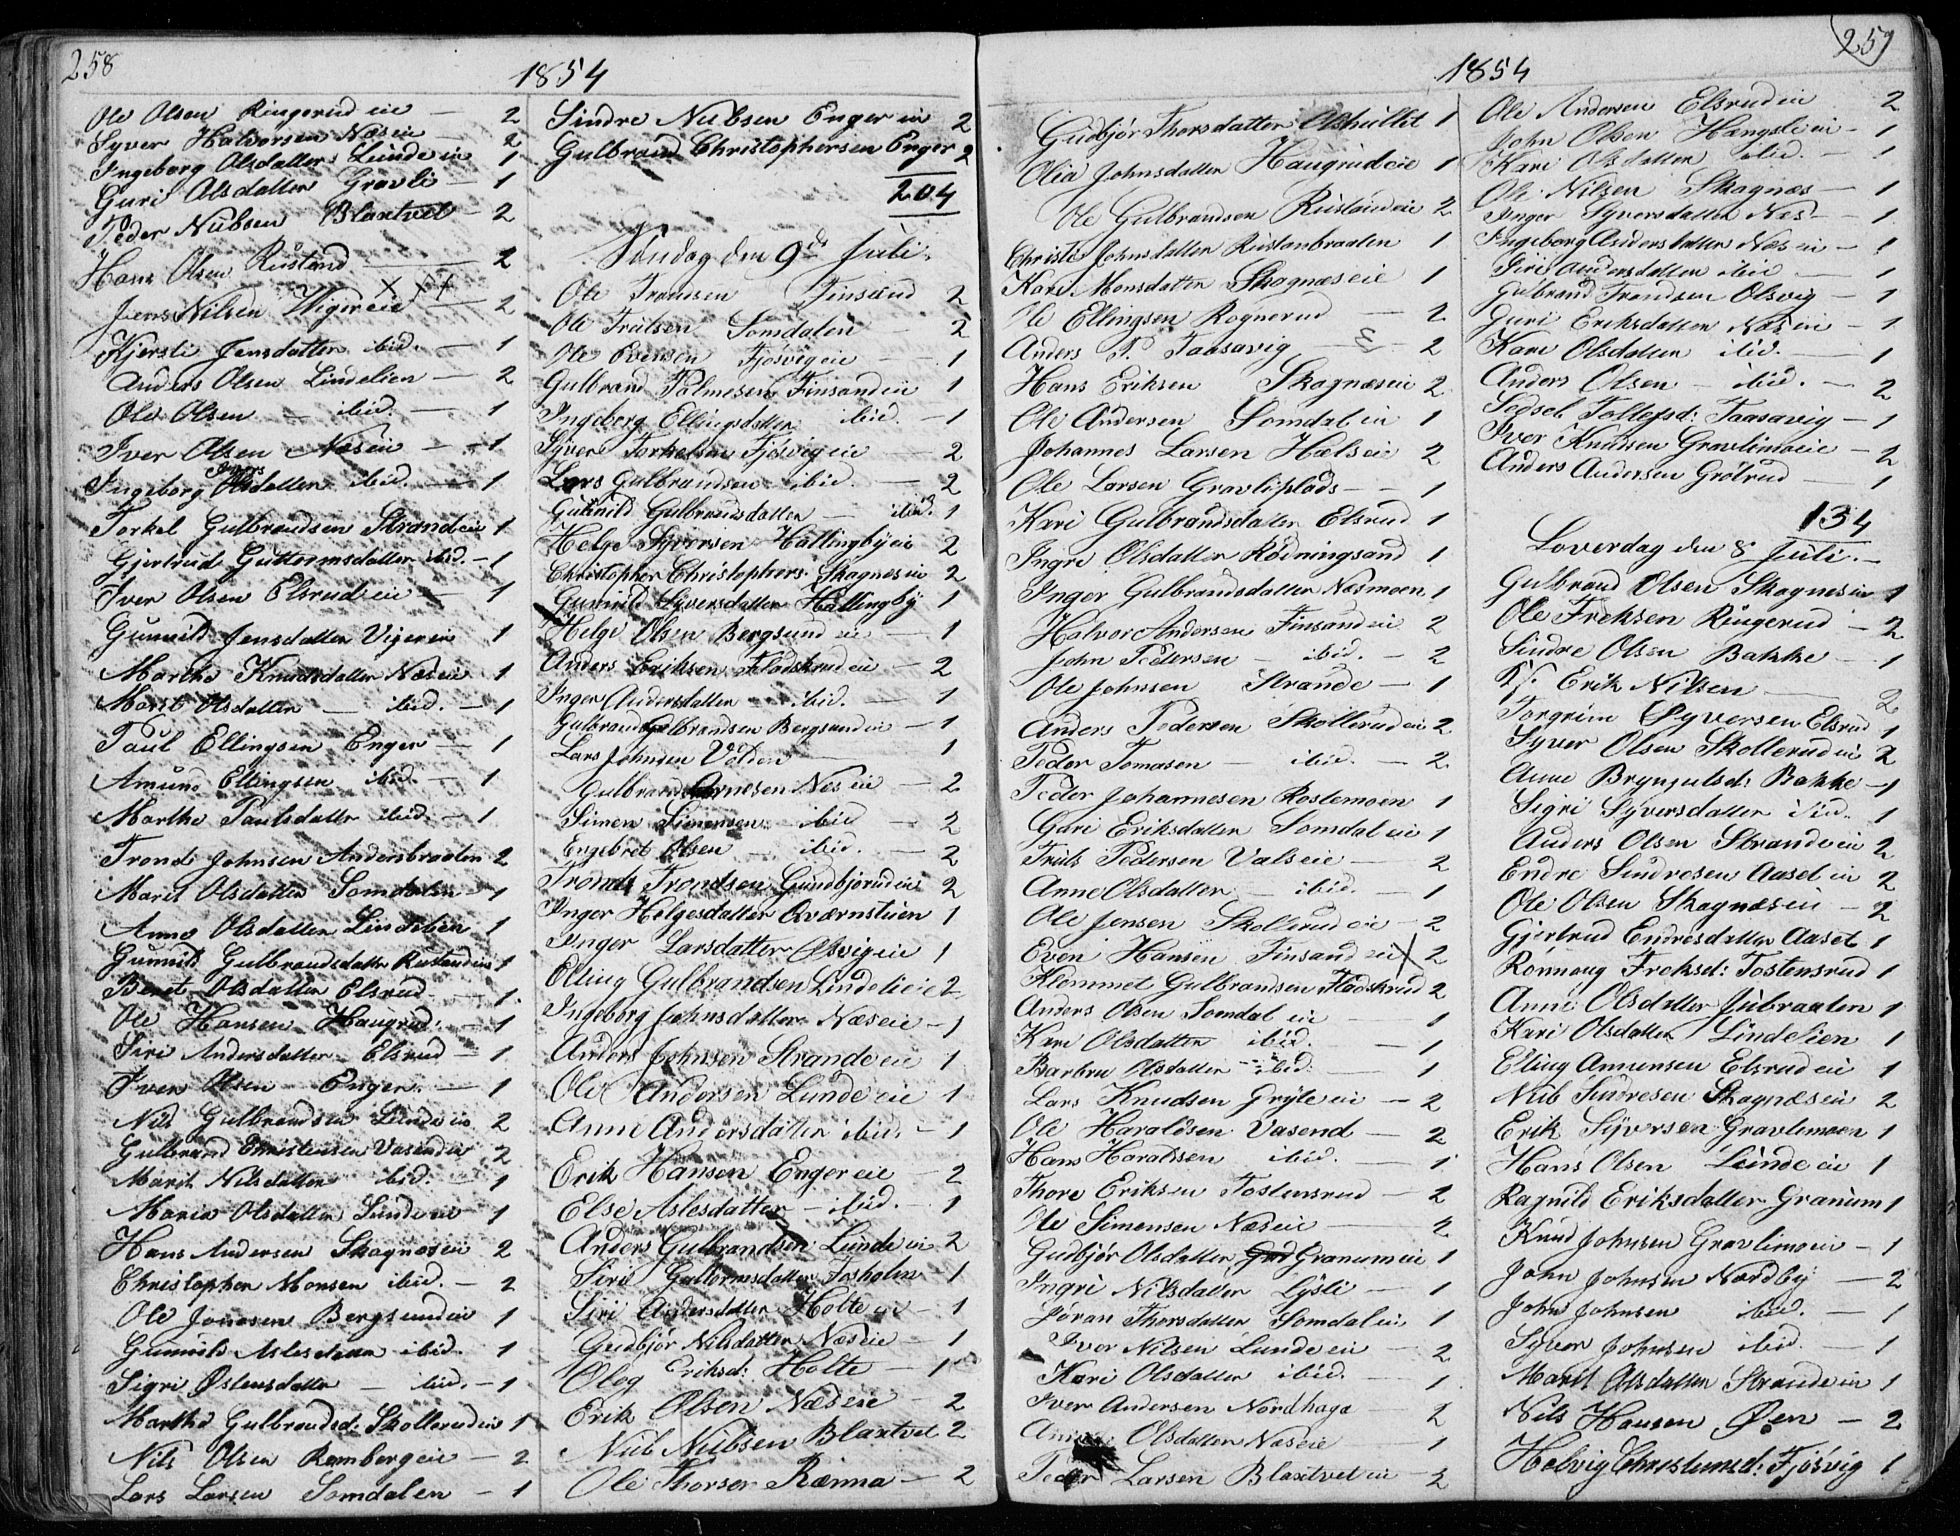 258
1854
Ole Olsen Ringerud eie — 2
Syver Halvorsen Næseie — 2
Ingeborg Olsdatter Lundeeie 1
Guri Olsdatter Gravli — 1
Peder Nubsen Blaxtvet — 2
Hans Olsen Rustand — 2
Jens Nilsen Vigereie — 2
Kjersti Jensdatter ibid. — 1
Anders Olsen Lindelien — 2
Ole Olsen — ibid. — 1
Iver Olsen Næseie — 1
Ingeborg Ivers Olsdatter ibid. — 1
Torkel Gulbrandsen Strandeie 1
Gjertrud Guttormsdatter ibid. — 1
Iver Olsen Elsrudeie — 1
Gunnild Jensdatter Vigereie 1
Marthe Knudsdatter Næseie 1
Marit Olsdatter — ibid. — 1
Paul Ellingsen Enger — 1
Amund Ellingsen ibid. — 1
Marthe Paulsdatter ibid. — 1
Trond Johnsen Andersbraaten 2
Marit Olsdatter Somdalen — 1
Anne Olsdatter Lindelien 1
Gunnild Gulbrandsdatter Rustandeie 1
Beret Olsdatter Elsrud — 1
Ole Hansen Haugrud — 1
Siri Andersdatter Elsrud — 1
Iver Olsen Enger — 1
Nils Gulbrandsen Lundeeie 2
Gulbrand Christensen Vasendeie 2
Marit Nilsdatter ibid. — 1
Maren Olsdatter Lundeeie 1
Hans Andersen Skagnæseie 2
Christopher Monsen ibid. — 2
Ole Jonasen Bergsundeie 1
Gunnild Aslesdatter ibid. 1
Sigri Østensdatter — ibid. — 1
Marthe Gulbrandsd: Skollerudeie 1
Nils Olsen Rambergeie — 2
Lars Larsen Somdalen — 1
Sindre Nubsen Engereie 2
Gulbrand Christophersen Enger 2
204
Søndag den 9de Juli.
Ole Trondsen Finsand 2
Ole Trulsen Somdalen 2
Ole Evensen Fjøsvigeie — 1
Gulbrand Palmesen Finsandeie 1
Ingeborg Ellingsdatter ibid. — 1
Syver Torkelsen Fjøsvigeie — 2
Lars Gulbrandsen ibid. — 2
Gunnild Gulbrandsdatter — ibid. 1
Helge Syversen Hallingbyeie 2
Christopher Christophers: Skagnæseie 2
Gunnild Syversdatter Hallingby 1
Helge Olsen Bergsundeie — 1
Anders Eriksen Flaskerudeie — 2
Inger Andersdatter — ibid. — 1
Gulbrand Gulbrandsen Bergsundeie — 1
Lars Johnsen Velden — 1
Gulbrand Arnesen Næseie — 2
Simen Simensen — ibid — 2
Engebret Olsen — ibid. — 2
Trond Trondsen Gundbjørudeie 2
Inger Helgesdatter Qværnstuen 1
Inger Larsdatter Olsvigeie 1
Elling Gulbrandsen Lindelieeie 2
Ingeborg Johnsdatter Næseie — 1
Anders Johnsen Strandeeie 1
Ole Andersen Lundeeie 1
Anne Andersdatter ibid. — 1
Erik Hansen Engereie — 2
Else Aslesdatter — ibid. — 1
Anders Gulbrandsen Lundeeie 2
Siri Guttormsdatter Fosholm 1
Siri Andersdatter Holteeie — 1
Gudbjør Nilsdatter Næseie — 1
Oleg Eriksd: Holte — 1
Erik Olsen Næseie 2
Nub Nubsen Blaxtvet 2
Ole Thorsen Rænna — 2
259
1854
Gudbjør Thorsdatter Ashullet 1
Olia Johnsdatter Haugrudeie 1
Ole Gulbrandsen Rustandeie 2
Christi Johnsdatter Rustanbraaten 1
Kari Monsdatter Skagnæseie 1
Ole Ellingsen Rognerud — 2
Anders P. Taasavig — 2
Hans Eriksen Skagnæseie 2
Ole Andersen Somdaleie 1
Johannes Larsen Hælseie 2
Ole Larsen Gravliplads — 1
Kari Gulbrandsdatter Elsrud 1
Ingri Olsdatter Rødningsand 1
Inger Gulbrandsdatter Næsmoen 1
Halvor Andersen Finsandeie 2
John Pedersen — ibid. — 2
Ole Johnsen Strande — 1
Anders Pedersen Skollerudeie 2
Peder Tomasen — ibid. — 2
Peder Johannesen Rostemoen 1
Gari Eriksdatter Somdaleie 1
Truls Pedersen Valseie — 2
Anne Olsdatter — ibid. — 1
Ole Jensen Skollerudeie — 2
Even Hansen Finsandeie X 2
Klemmet Gulbrandsen Flaskrud 2
Anders Olsen Somdaleie — 1
Kari Olsdatter ibid. — 1
Barbru Olsdatter ibid. — 1
Lars Knudsen Gryteeie — 2
Ole Haraldsen Vasend — 2
Hans Haraldsen ibid. — 1
Thore Eriksen Tostensrud — 2
Ole Simensen Næseie — 2
Gudbjør Olsdatter Gud Granumeie 1
Ingri Nilsdatter Lysli — 1
Jøran Thorsdatter Somdaleie 1
Iver Nilsen Lundeeie — 2
Kari Olsdatter ibid. — 1
Iver Andersen Nordhaga — 2
Anne Olsdatter Næseie — 1
Peder Larsen Blaxtveteie — 2
Ole Andersen Elsrudeie 2
John Olsen Hængsleeie — 1
Kari Olsdatter ibid. — 1
Ole Nilsen Skagnæs — 1
Inger Syversdatter Næs — 1
Ingeborg Andersdatter Næseie — 1
Siri Andersdatter ibid — 1
Gulbrand Trondsen Olsvig — 1
Guri Eriksdatter Næseie — 1
Kari Olsdatter ibid. — 1
Anders Olsen — ibid. — 2
Sedsel Tollefsd: Taasavig — 1
Iver Knudsen Gravlimoeie — 2
Anders Andersen Grøtrud — 1
134
Løverdag den 8 Juli. —
Gulbrand Olsen Skagnæseie 1
Ole Freksen Ringerud — 2
Sindre Olsen Bakke — 1
Erik Nilsen — 2
Torgrim Syversen Elsrud 1
Syver Olsen Skollerudeie 2
Anne Brynjulsd: Bakke — 1
Sigri Syversdatter ibid. 1
Anders Olsen Strandeeie 2
Endre Sindresen Aaseteie 2
Ole Olsen Skagnæseie — 2
Gjertrud Endresdatter Aaset 1
Rønnaug Freksd: Tostensrud 1
Anne Olsdatter Jubraaten 1
Kari Olsdatter Lindelien 1
Elling Amunsen Elsrudeie 1
Nub Sindresen Skagnæseie 2
Erik Syversen Gravlemoen 1
Hans Olsen Lundeeie 1
Ragnild Eriksdatter Granum 1
Knud Johnsen Gravlimoeie — 1
John Johnsen Nordby — 2
John Johnsen ibid. — 1
Syver Johnsen ibid. — 1
Marit Olsdatter Strandeeie 1
Nils Hansen Øen — 2
Helvig Christensd: Fjøsvig 1